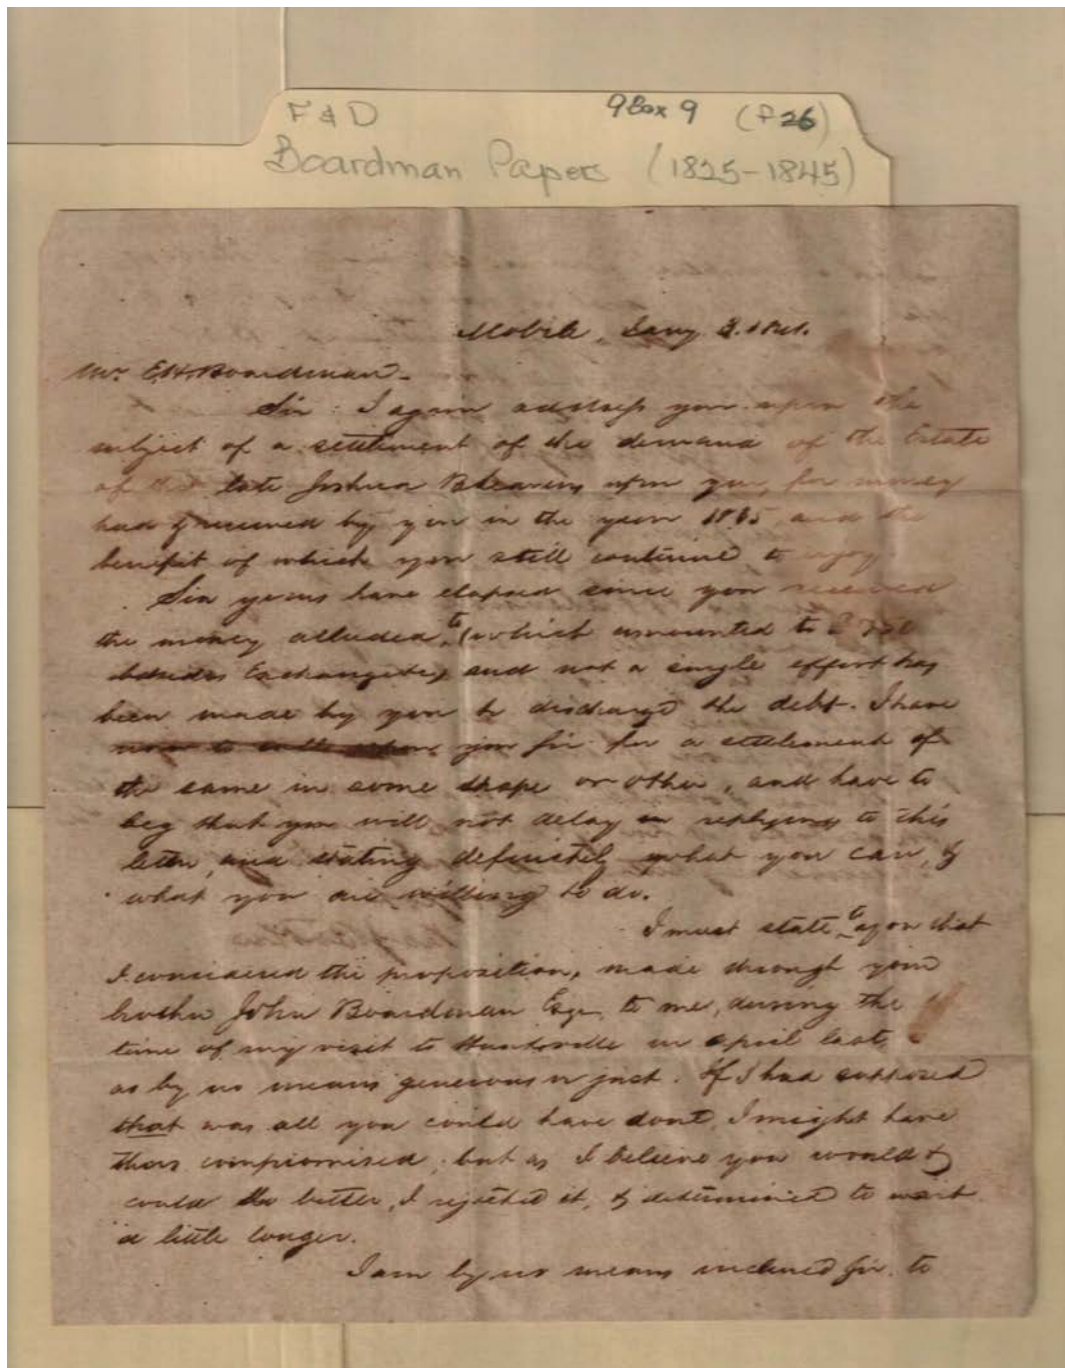 F & D 9Box 9 (f26)
Boardman Papers (1825-1845)
Mobile, Jany 3. 1841.
Mr E H Boardman.
Sir: I again address you upon the
subject of a settlement of the demand of the Estate
of the late Joshua upon you, for money
had & received by you in the year 1835, and the
benifit of which you still continue to enjoy
Six years have elapsed since you received
the money alluded to (which amounted to
besides Exchange &c) and not a single effort has
been made by you to discharge the debt. I have
now to call upon you sir for a settlement of
the same in some shape or other, and have to
beg that you will not delay in replying to this
letter, and stating definitely what you can, &
what you are willing to do.
I must state to you that
I considered the proposition, made through your
brother John Boardman Esqr to me, during the
time of my visit to Huntsville in april last
as by no means generous or just. If I had supposed
that was all you could have done, I might have
then compromised; but as I believe you would &
could do better, I rejected it, & determined to wait
a little longer.
I am by no means inclined Sir, to